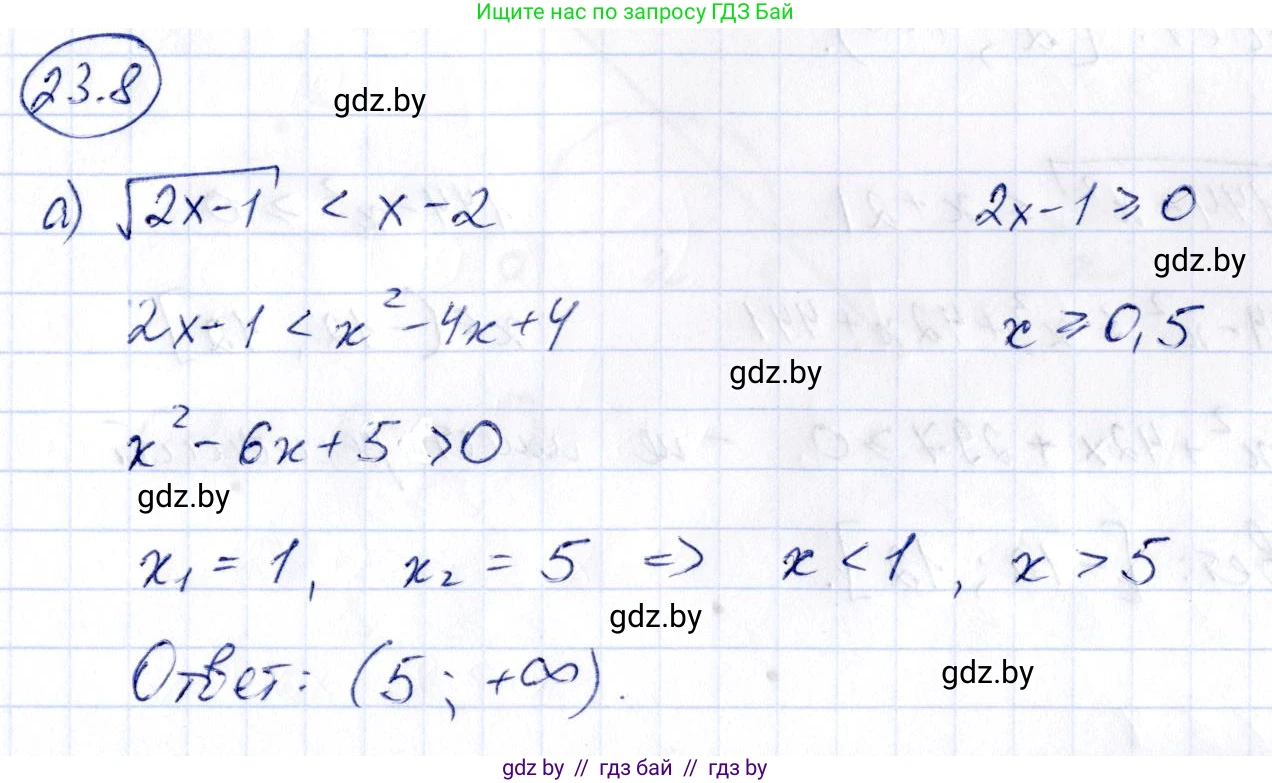 Ищите нас по запросу ГДЗ Бай
23.8
gdz.by
а) √(2x-1) < x-2    2x-1 ⩾ 0
gdz.by
2x-1 < x²-4x+4    x ⩾ 0,5
gdz.by
x² - 6x + 5 > 0
gdz.by
x₁ = 1,  x₂ = 5 => x < 1, x > 5
gdz.by
Ответ: (5; +∞).
gdz.by
gdz by // гдз бай // гдз by